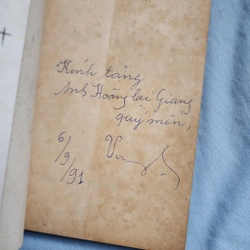 Kính tặng
Anh Hoàng Lại Giang
quý mến,
6/9/91